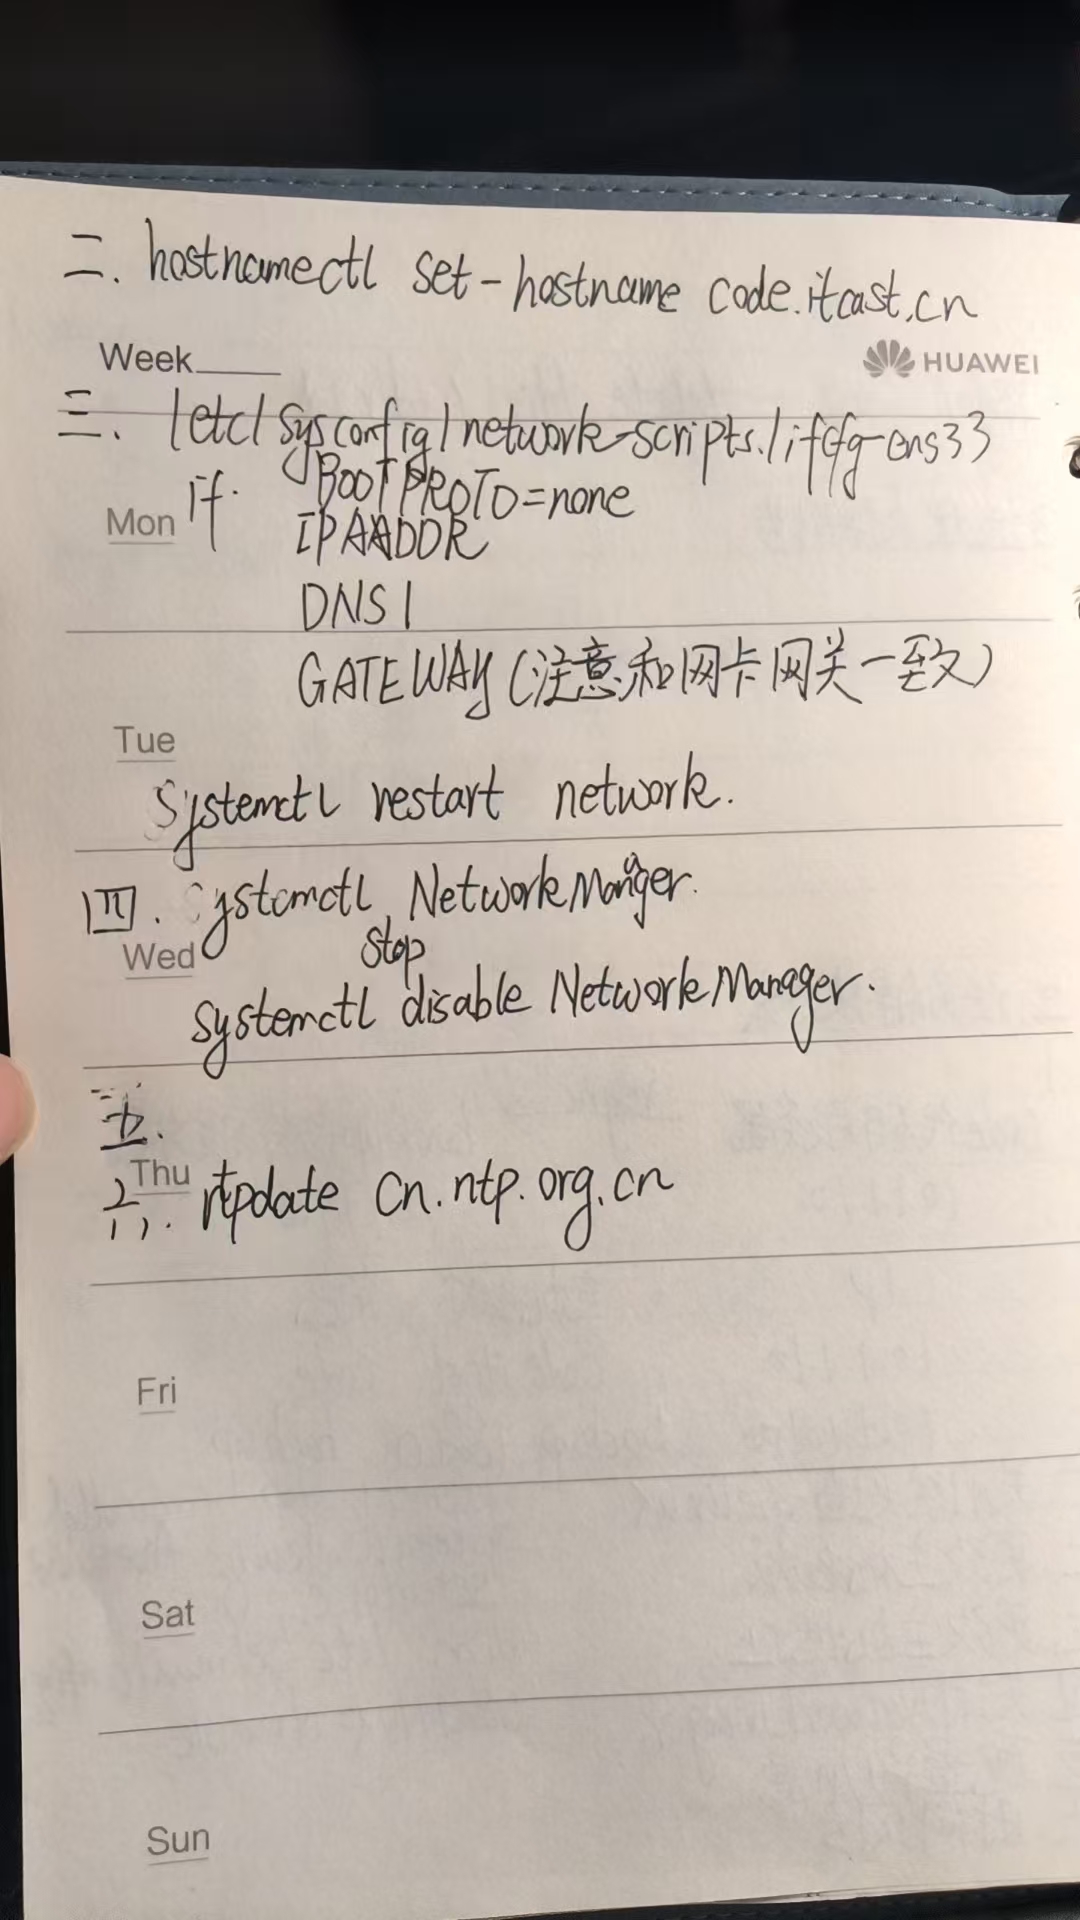 二. hostnamectl set-hostname code.itcast.cn
Week HUAWEI
三. /etc/sysconfig/network-scripts./ifcfg-ens33
if. BOOTPROTO=none
Mon
IPAADDR
DNS1
GATEWAY(注意和网卡网关一致)
Tue
Systemctl restart network.
四. Systemctl NetworkManager.
stop
Wed
systemctl disable NetworkManager.
五.
Thu
六. ntpdate cn.ntp.org.cn
Fri
Sat
Sun